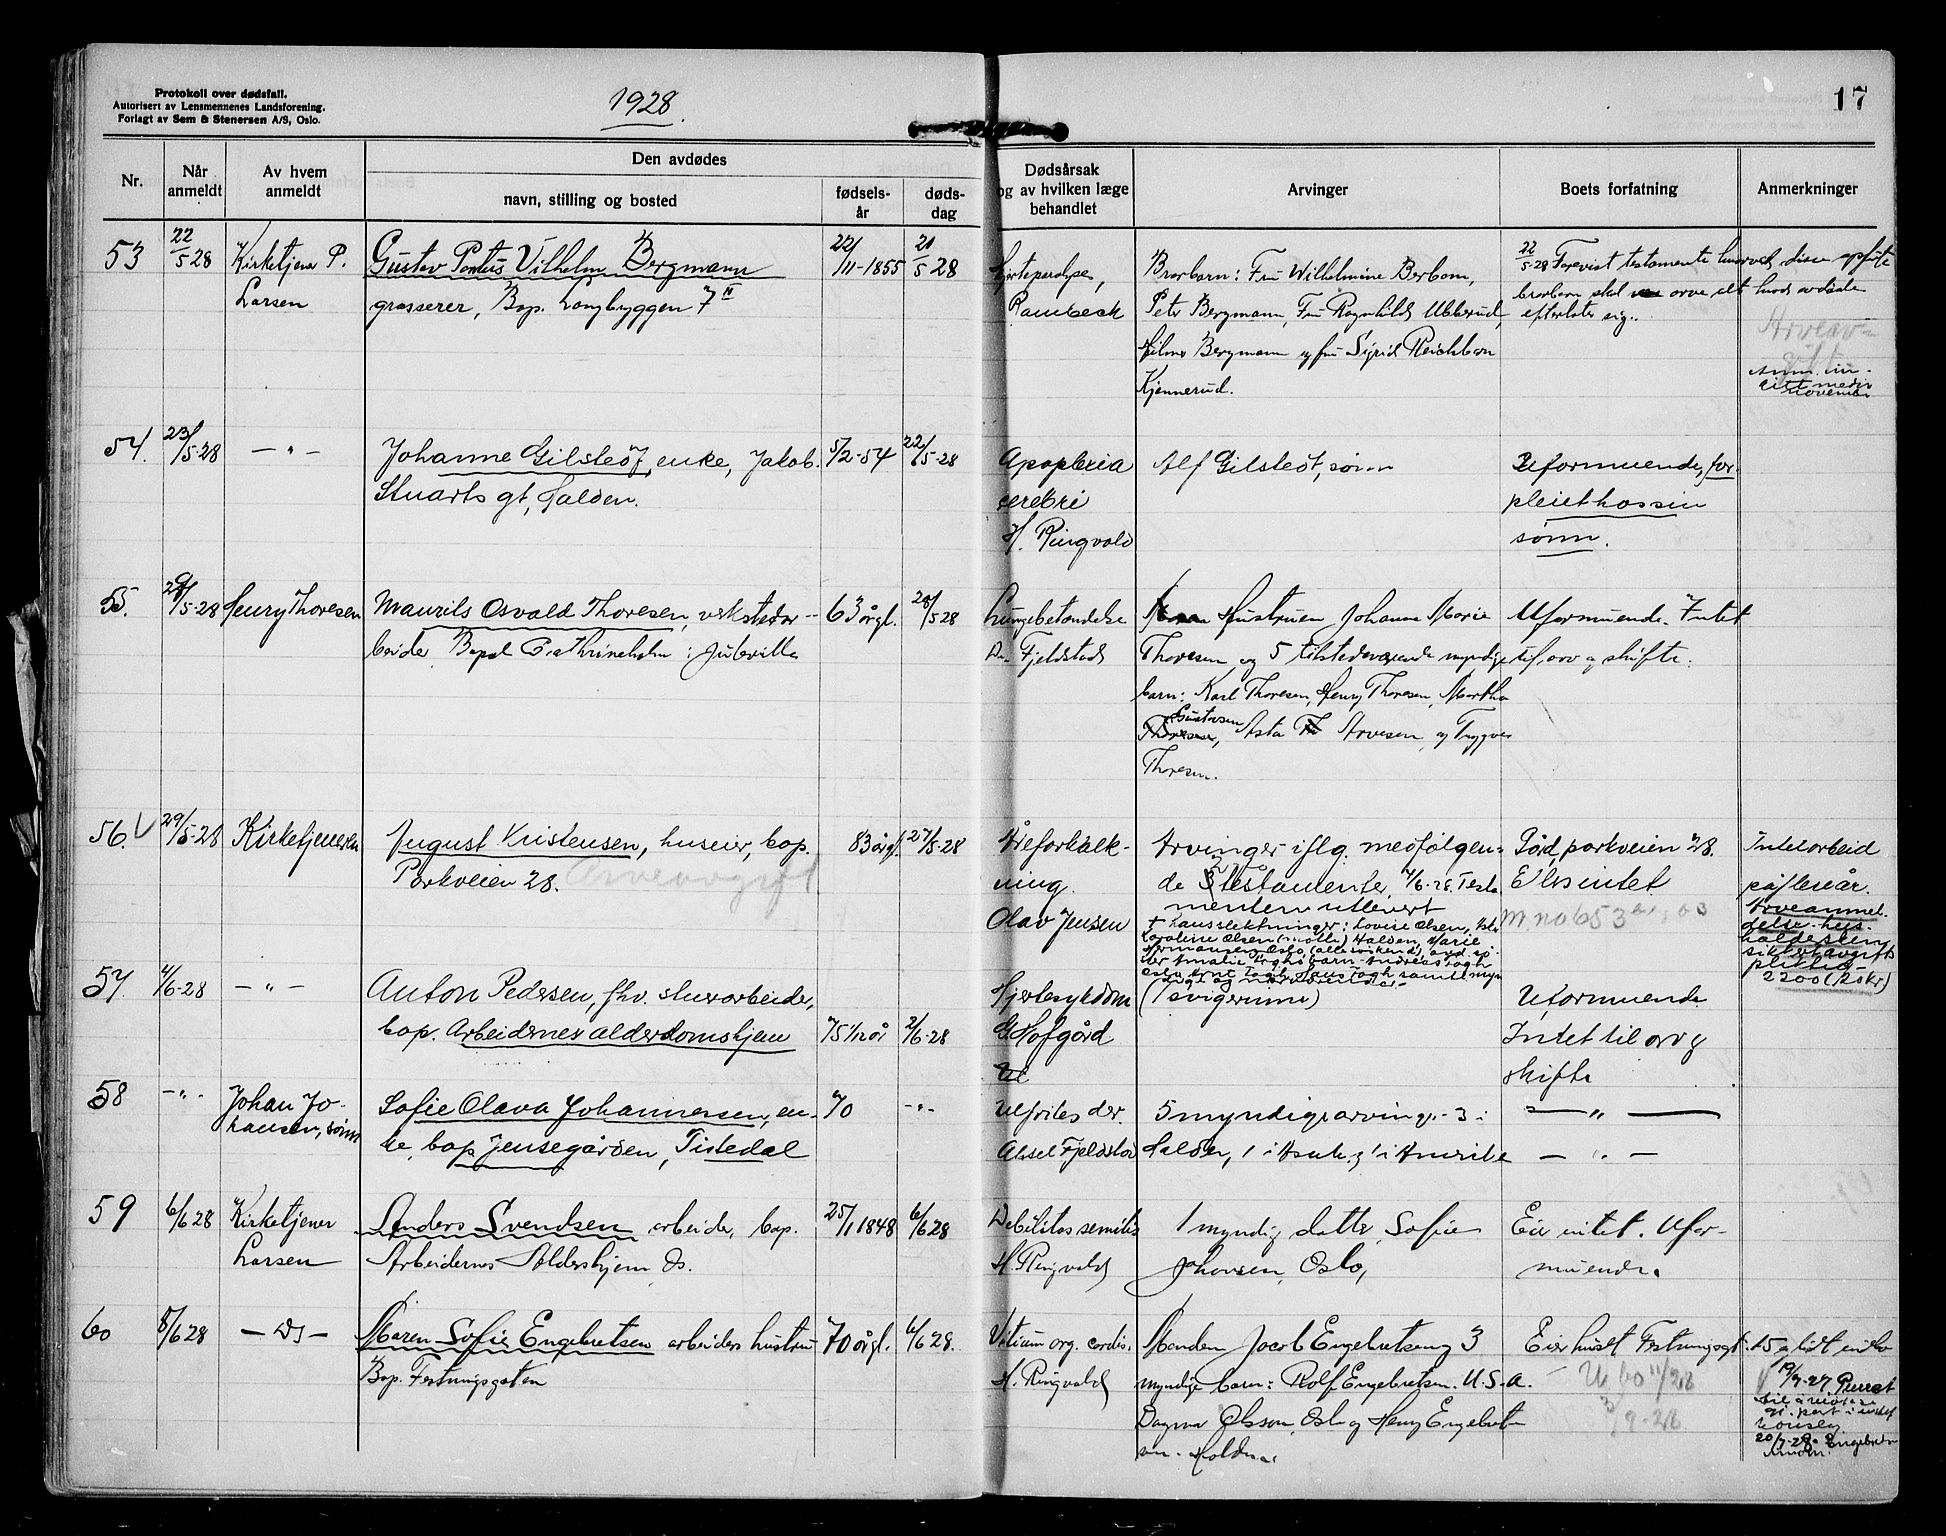 Protokoll over dødsfall.
Autorisert av Lensmennenes Landsforening.
Forlagt av Sem & Stenersen A/S, Oslo.
1928.
17
Nr.
Når anmeldt
Av hvem anmeldt
Den avdødes
navn, stilling og bosted
fødsels-år
døds-dag
Dødsårsak og av hvilken læge behandlet
Arvinger
Boets forfatning
Anmerkninger
53
22/5 28
Kirketjener P.
Larsen
Gustav Pontus Vilhelm Bergmann
grosserer, Bop. Langbryggen 7 II
22/11-1855
21/5 28
Hjerteparalyse,
Rambeck
Brorbarn: Fru Wilhelmine Berbom,
Peter Bergmann, Fru Ragnhild Ubberud,
Hilmar Bergmann og fru Sigrid
Kjennerud.
22/5-28 Forevist testamente hvorved disse opførte
brorbarn skal arve alt hvad avdøde
efterlater sig.
Arveav-
gift
54.
23/5-28
— " —
Johanne Gilstedt, enke, Jakob
Stuarts gt, Halden.
5/2-54
22/5-28
Apoplexia
cerebri
H. Ringvold
Alf Gilstedt, sønn
Uformuende, for-
pleiet hos sin
sønn.
55.
29/5-28
Henry Thoresen
Maurits Osvald Thoresen, verkstedar-
beider Bopel Cathrineholm i Jubvilla
63 årgl.
28/5 28
Lungebetændelse
Dr. Fjeldstad
Hustruen Johanne Marie
Thoresen og 5 tilstedeværende myndige
barn: Karl Thoresen, Henry Thoresen, Martha
Gustavsen
Thoresen, Asta Arvesen og Trygve
Thoresen.
Uformuende. Intet
til arv og skifte.
56. V
29/5-28
Kirketjeneren
August Kristensen, huseier, bop.
Parkveien 28. Arveavgift
83 årgl.
27/5-28
Åreforkalk-
ning.
Olav Jensen
Arvinger iflg. medfølgen-
de 2 testamenter 4/6-28. Testa
menten utlevert
Gård, parkveien 28.
Ellers intet
M.no 653
Intet arbeid
på flere år.
Arveanmel-
2200 (120 kr)
57.
4/6-28
— " —
Anton Pedersen, fhv. stuearbeider,
bop. Arbeidernes alderdomshjem
75 1/2 år
2/6-28
Hjertesykdom
G. Hofgård
(1 svigerinne)
Uformuende
Intet til arv og
skifte
58
— " —
Johan Jo-
hansen, sønn
Sofie Olava Johannessen, en-
ke, bop. Jensegården, Tistedal
70
— " —
Aksel Fjeldstad
5 myndige arvinger - 3 i
Halden, 1 i Asak og 1 i Amerika
— " —
— " —
59
6/6 28
Kirketjener
Larsen
Anders Svendsen arbeider, bop.
Arbeidernes Aldershjem Ds.
25/1 1848
6/6 28
Debilitas senilis
H. Ringvold
1 myndig datter, Sofie
Johansen, Oslo,
Eier intet. Ufor-
muende.
60
8/6 28
— Ds —
Maren Sofie Engebretsen arbeiders hustru
Bop. Festningsgaten
70 årgl.
6/6 28.
Vitium org. cordis.
H. Ringvold
Manden Jacob Engebretsen og 3
myndige barn: Rolf Engebretsen. U.S.A.
Dagmar Olsson, Oslo og Henry Engebret
sen. Halden.
Eier huset Festningsgt. 15 og litt indbo
U. bo 11/7 28
3/9-28
19/7-27. Purret
20/7-28.